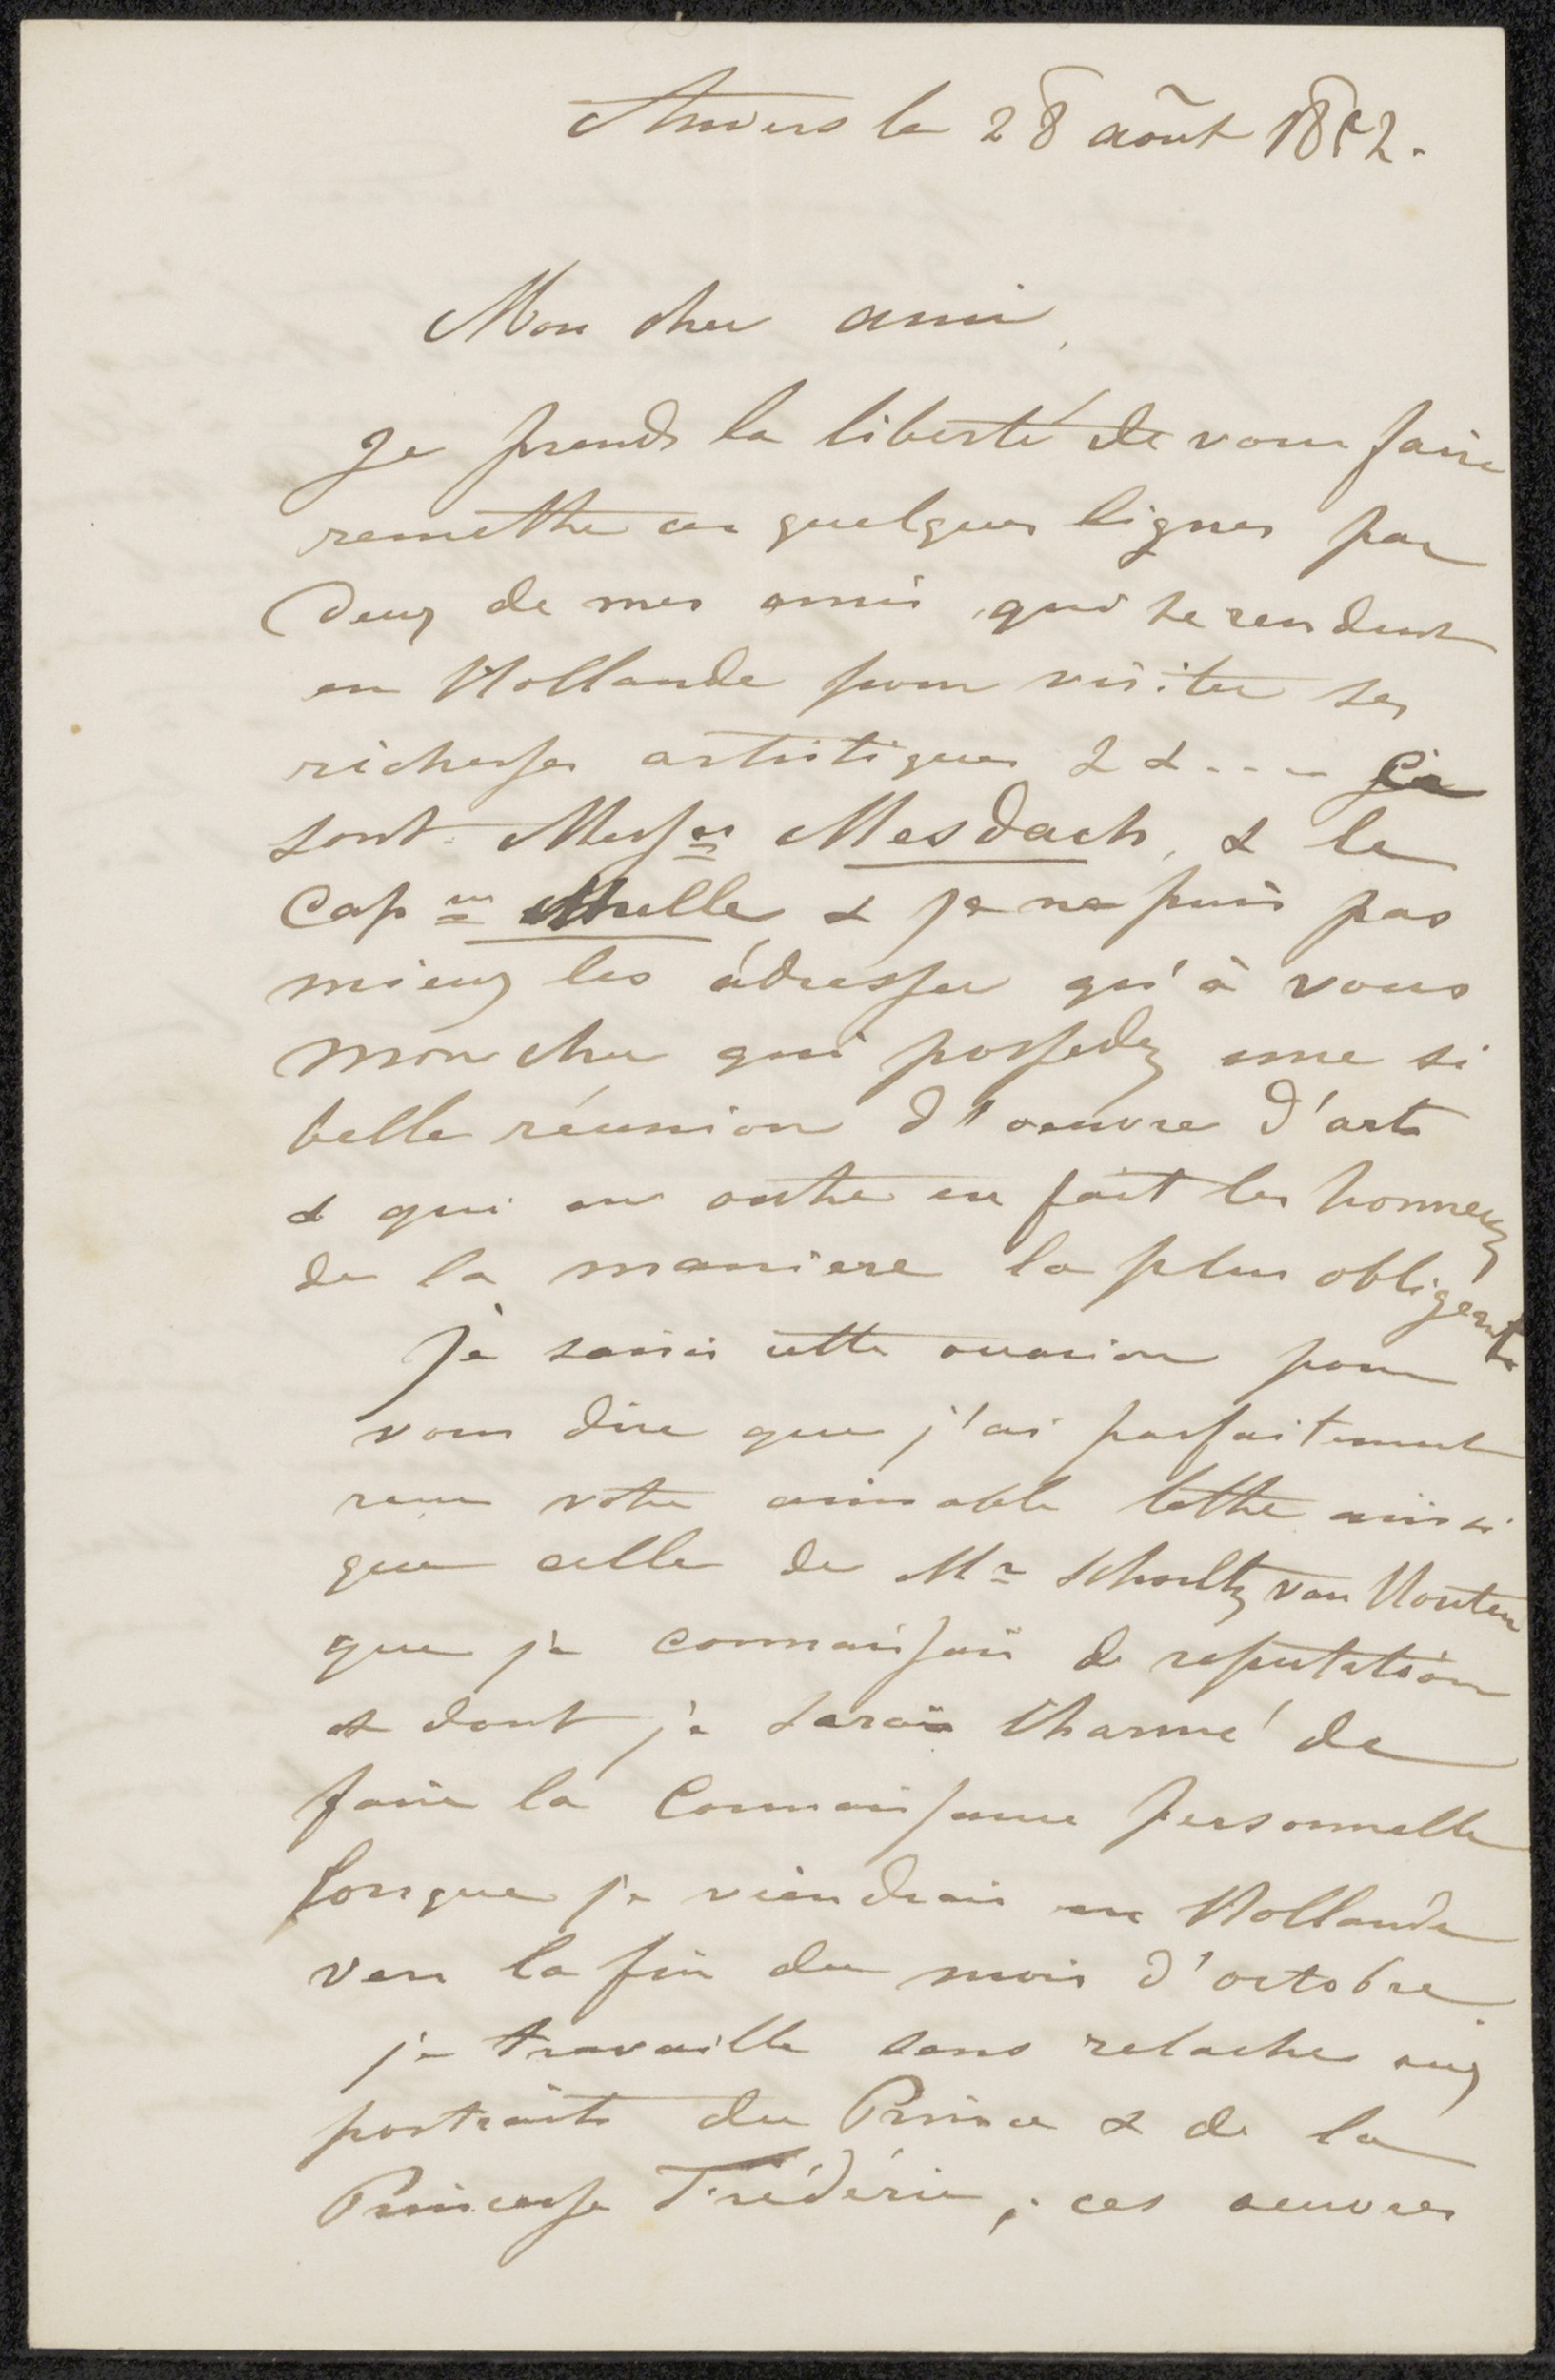 Anvers le 28 août 1852.
Mon cher ami,
Je prends la liberté de vous faire
remettre ces quelques lignes par
deux de mes amis, qui se rendent
en Hollande pour visiter ses
richesses artistiques & & - - - Ce
sont Messrs Mesdach, & le
Capne & je ne puis pas
mieux les adresser qu'à vous
mon cher qui possedez une si
belle réunion d'oeuvre d'arts
& qui en outre en fait les honneurs
de la maniere la plus obligeante
Je saisis cette occasion pour
vous dire que j'ai parfaitement
recu votre aimable lettre ainsi
que celle de Mr Schoultz van Houten
que je connaissais de reputation
& dont je serais charmé de
faire la Connaissance personnelle
lorsque je viendrais en Hollande
vers la fin du mois d'octobre.
je travaille sans relache aux
portraits du Prince & de la
Princesse Frédéric, ces oeuvres